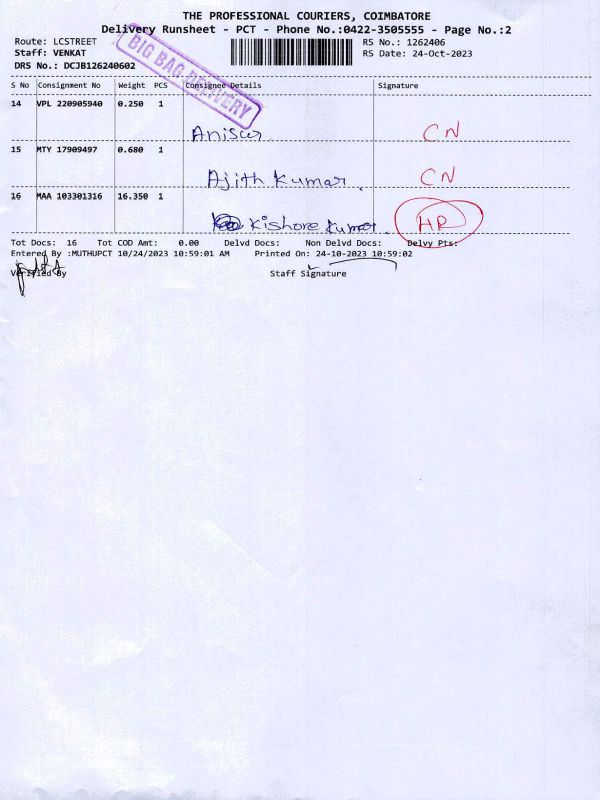 THE PROFESSIONAL COURIERS, COIMBATORE
Delivery Runsheet - PCT - Phone No.:0422-3505555 - Page No.:2
Route: LCSTREET RS No.: 1262406
Staff: VENKAT RS Date: 24-Oct-2023
DRS No.: DCJB126240602
BIG BAG DELIVERY
S No Consignment No Weight PCS Consignee Details Signature
14 VPL 220905940 0.250 1
Aniser CN
15 MTY 17909497 0.680 1
Ajith Kumar. CN
16 MAA 103301316 16.350 1
Kishore Kumar. HR
Tot Docs: 16 Tot COD Amt: 0.00 Delvd Docs: Non Delvd Docs: Delvy Pts:
Entered By :MUTHUPCT 10/24/2023 10:59:01 AM Printed On: 24-10-2023 10:59:02
Verified By Staff Signature